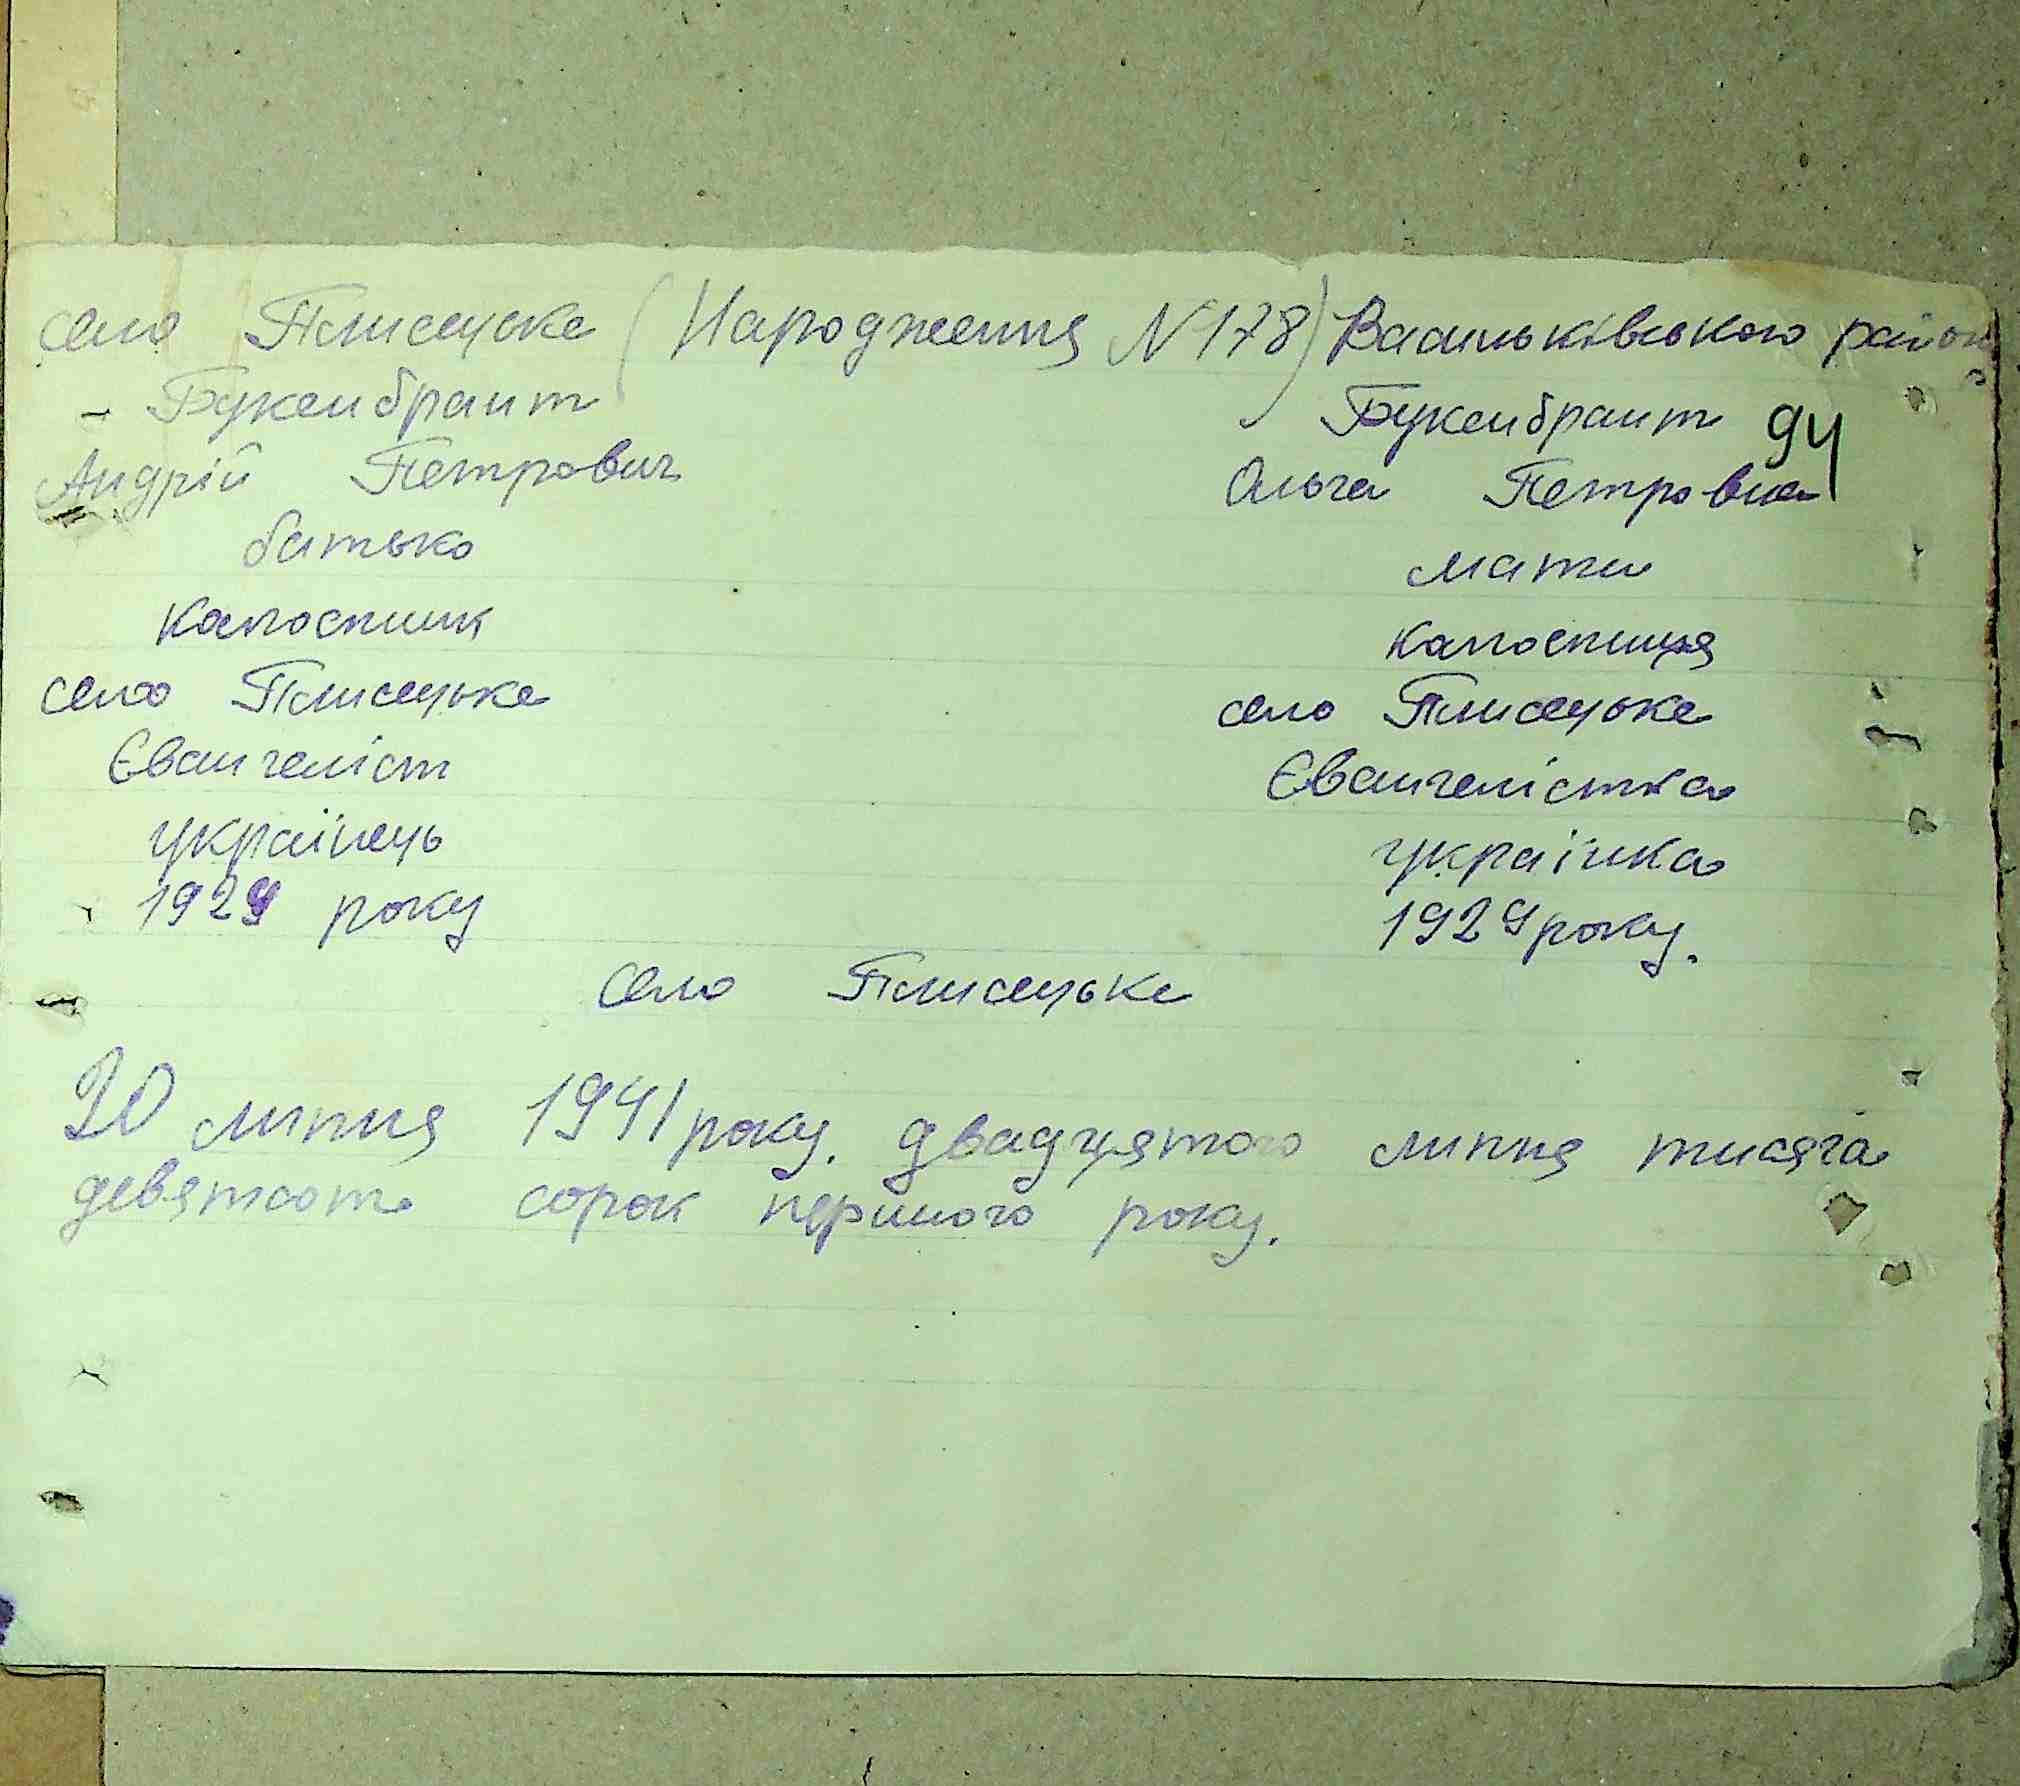 село Плисецьке (Народження №178) Васильківського району
- Букенбрант Букенбрант 94
Андрій Петрович Ольга Петровна
батько мати
колгоспник колгоспниця
село Плисецьке село Плисецьке
Євангеліст Євангелістка
українець українка
1929 року 1929 року.
село Плисецьке
20 липня 1941 року. двадцятого липня тисяча
девятсот сорок першого року.